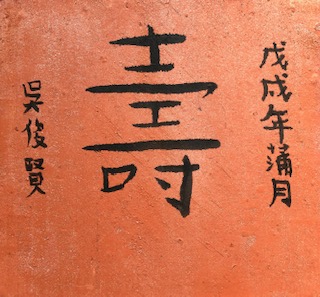 戊戌年蒲月
壽
吳俊賢